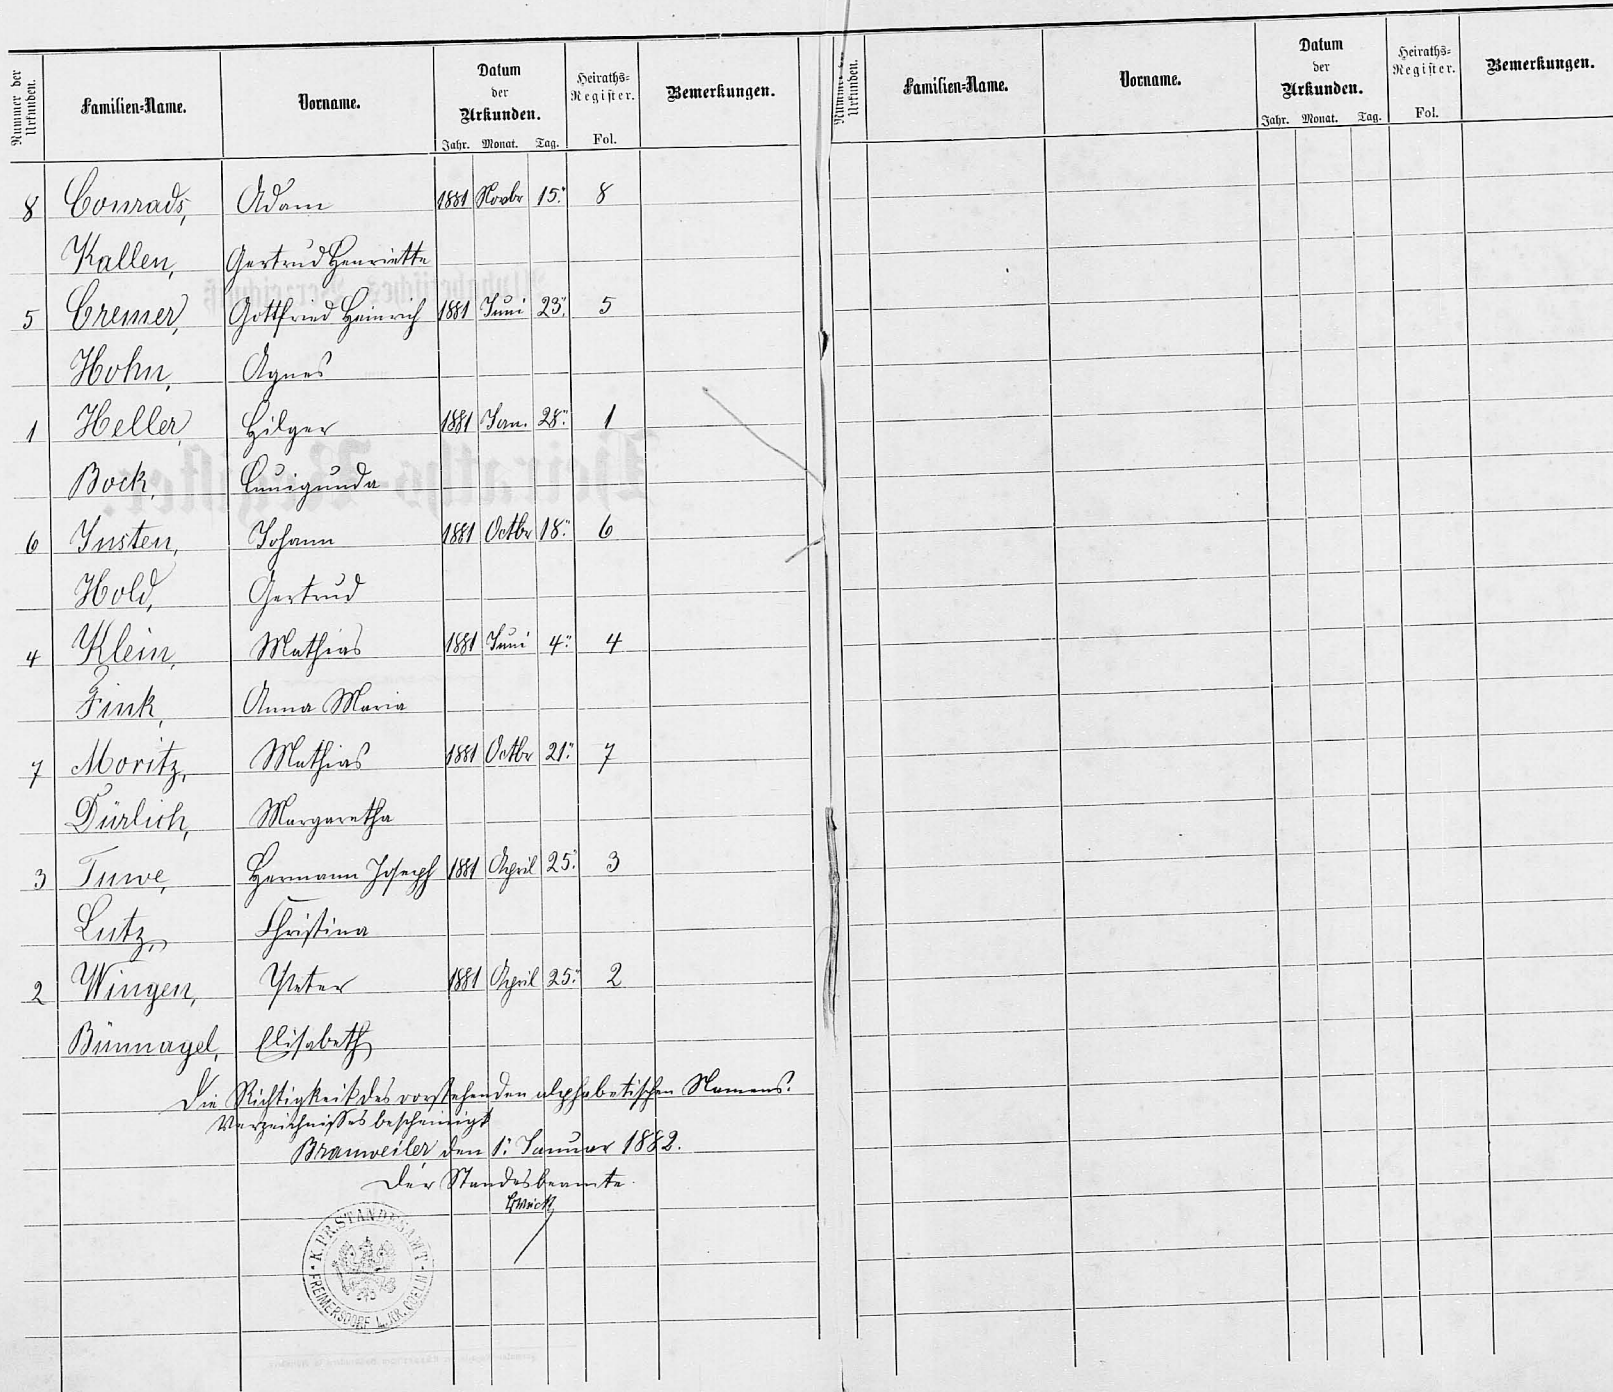 Nummer der Urkunden. Familien-Name. Vorname. Datum der Urkunden. Jahr. Monat. Tag. Heiraths-Register. Fol. Bemerkungen.
8 Conrads, Adam 1881 Novbr 15. 8
Kallen, Gertrud Henriette
5 Cremer, Gottfried Heinrich 1881 Juni 23. 5
Hohn, Agnes
1 Heller, Hilger 1881 Jan. 28. 1
Bock, Cunigunda
6 Justen, Johann 1881 Octbr 18. 6
Hold, Gertrud
4 Klein, Mathias 1881 Juni 4. 4
Fink, Anna Maria
7 Moritz, Mathias 1881 Octbr 21. 7
Dürlich, Margaretha
3 Tuwe, Hermann Joseph 1881 April 25. 3
Lutz, Christina
2 Wingen, Peter 1881 April 25. 2
Bünnagel, Elisabeth
Die Richtigkeit des vorstehenden alphabetischen Namens-
Verzeichnisses bescheinigt
Brauweiler den 1. Januar 1882.
Der Standesbeamte.
K. PR. STANDESAMT
FREIMERSDORF L. KR. COELN
Nummer der Urkunden. Familien-Name. Vorname. Datum der Urkunden. Jahr. Monat. Tag. Heiraths-Register. Fol. Bemerkungen.